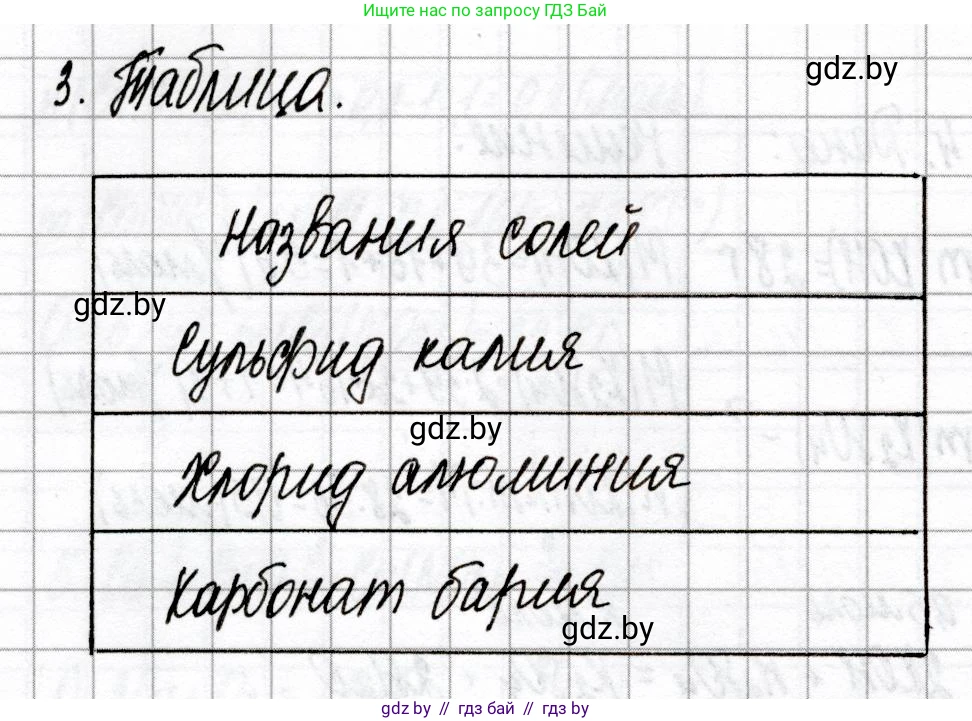 Ищите нас по запросу ГДЗ Бай
3. Таблица.
gdz.by
Названия солей
gdz.by
Сульфид калия
gdz.by
Хлорид алюминия
Карбонат бария
gdz.by
gdz.by // гдз бай // гдз by